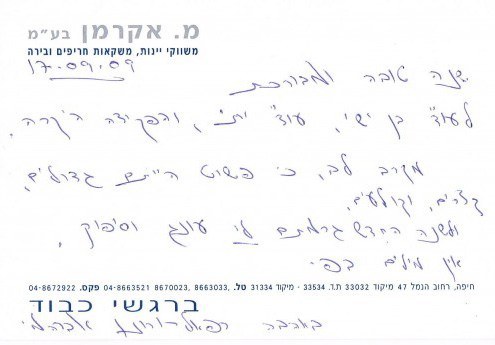 מ. אקרמן בע״מ
משווקי יינות, משקאות חריפים ובירה
17.09.09
שנה טובה ומבורכת
לעו״ד בן ישי, עו״ד יתי, והפקידה היקרה,
מקרב לב, כי פשוט הייתם גדולים,
קצרים, וקולעים.
ולשנה החדש גרמתם לי עונג וסיפוק,
אין מילים בפי.
חיפה, רחוב הנמל 47 מיקוד 33032 ת.ד. 33534 - מיקוד 31334 טל. 8663033, 8670023, 04-8663521 פקס. 04-8672922
ברגשי כבוד
בברכה רפאל